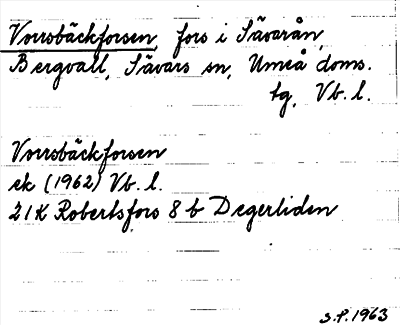 Vorrsbäckforsen, fors i Sävarån,
Bergvall, Sävars sn, Umeå doms.
tg, Vb. l.
Vorrsbäckforsen
ek (1962) Vb. l.
21K Robertsfors 8 b Degerliden
S.P. 1963